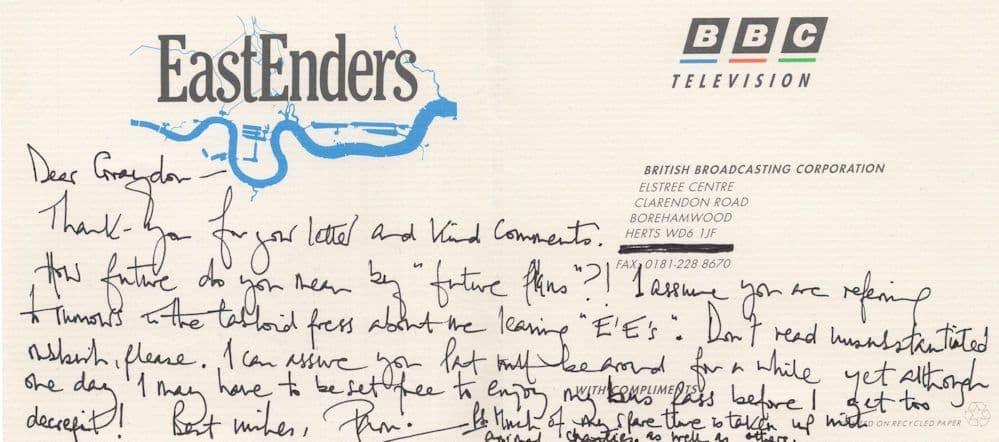 EastEnders
BBC
TELEVISION
BRITISH BROADCASTING CORPORATION
ELSTREE CENTRE
CLARENDON ROAD
BOREHAMWOOD
HERTS WD6 1JF
FAX: 0181-228 8670
Dear Graydon —
Thank-you for your letter and kind comments.
How future do you mean by "future plans"?! I assume you are referring
to rumours in the tabloid press about me leaving "E'E's". Don't read unsubstantiated
rubbish, please. I can assure you Pat will be around for a while yet although
one day I may have to be set free to enjoy my bus pass before I get too
WITH COMPLIMENTS
decrepit! Best wishes, Pam. Ps Much of my spare time is taken up with
animal charities as well as others.
ED ON RECYCLED PAPER